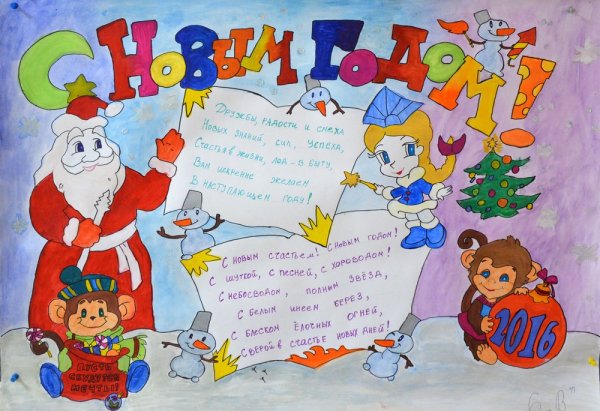 С НОВЫМ ГОДОМ!
Дружбы, радости и смеха
Новых знаний, сил, успеха,
Счастья в жизни, лад – в быту,
Вам искренне желаем
В наступающем году!
С новым счастьем! С новым годом!
С шуткой, с песней, с хороводом!
С небосводом, полным звёзд,
С белым инеем берёз,
С блеском ёлочных огней,
С верой в счастье новых дней!
ПУСТЬ
СБУДУТСЯ
МЕЧТЫ!
2016